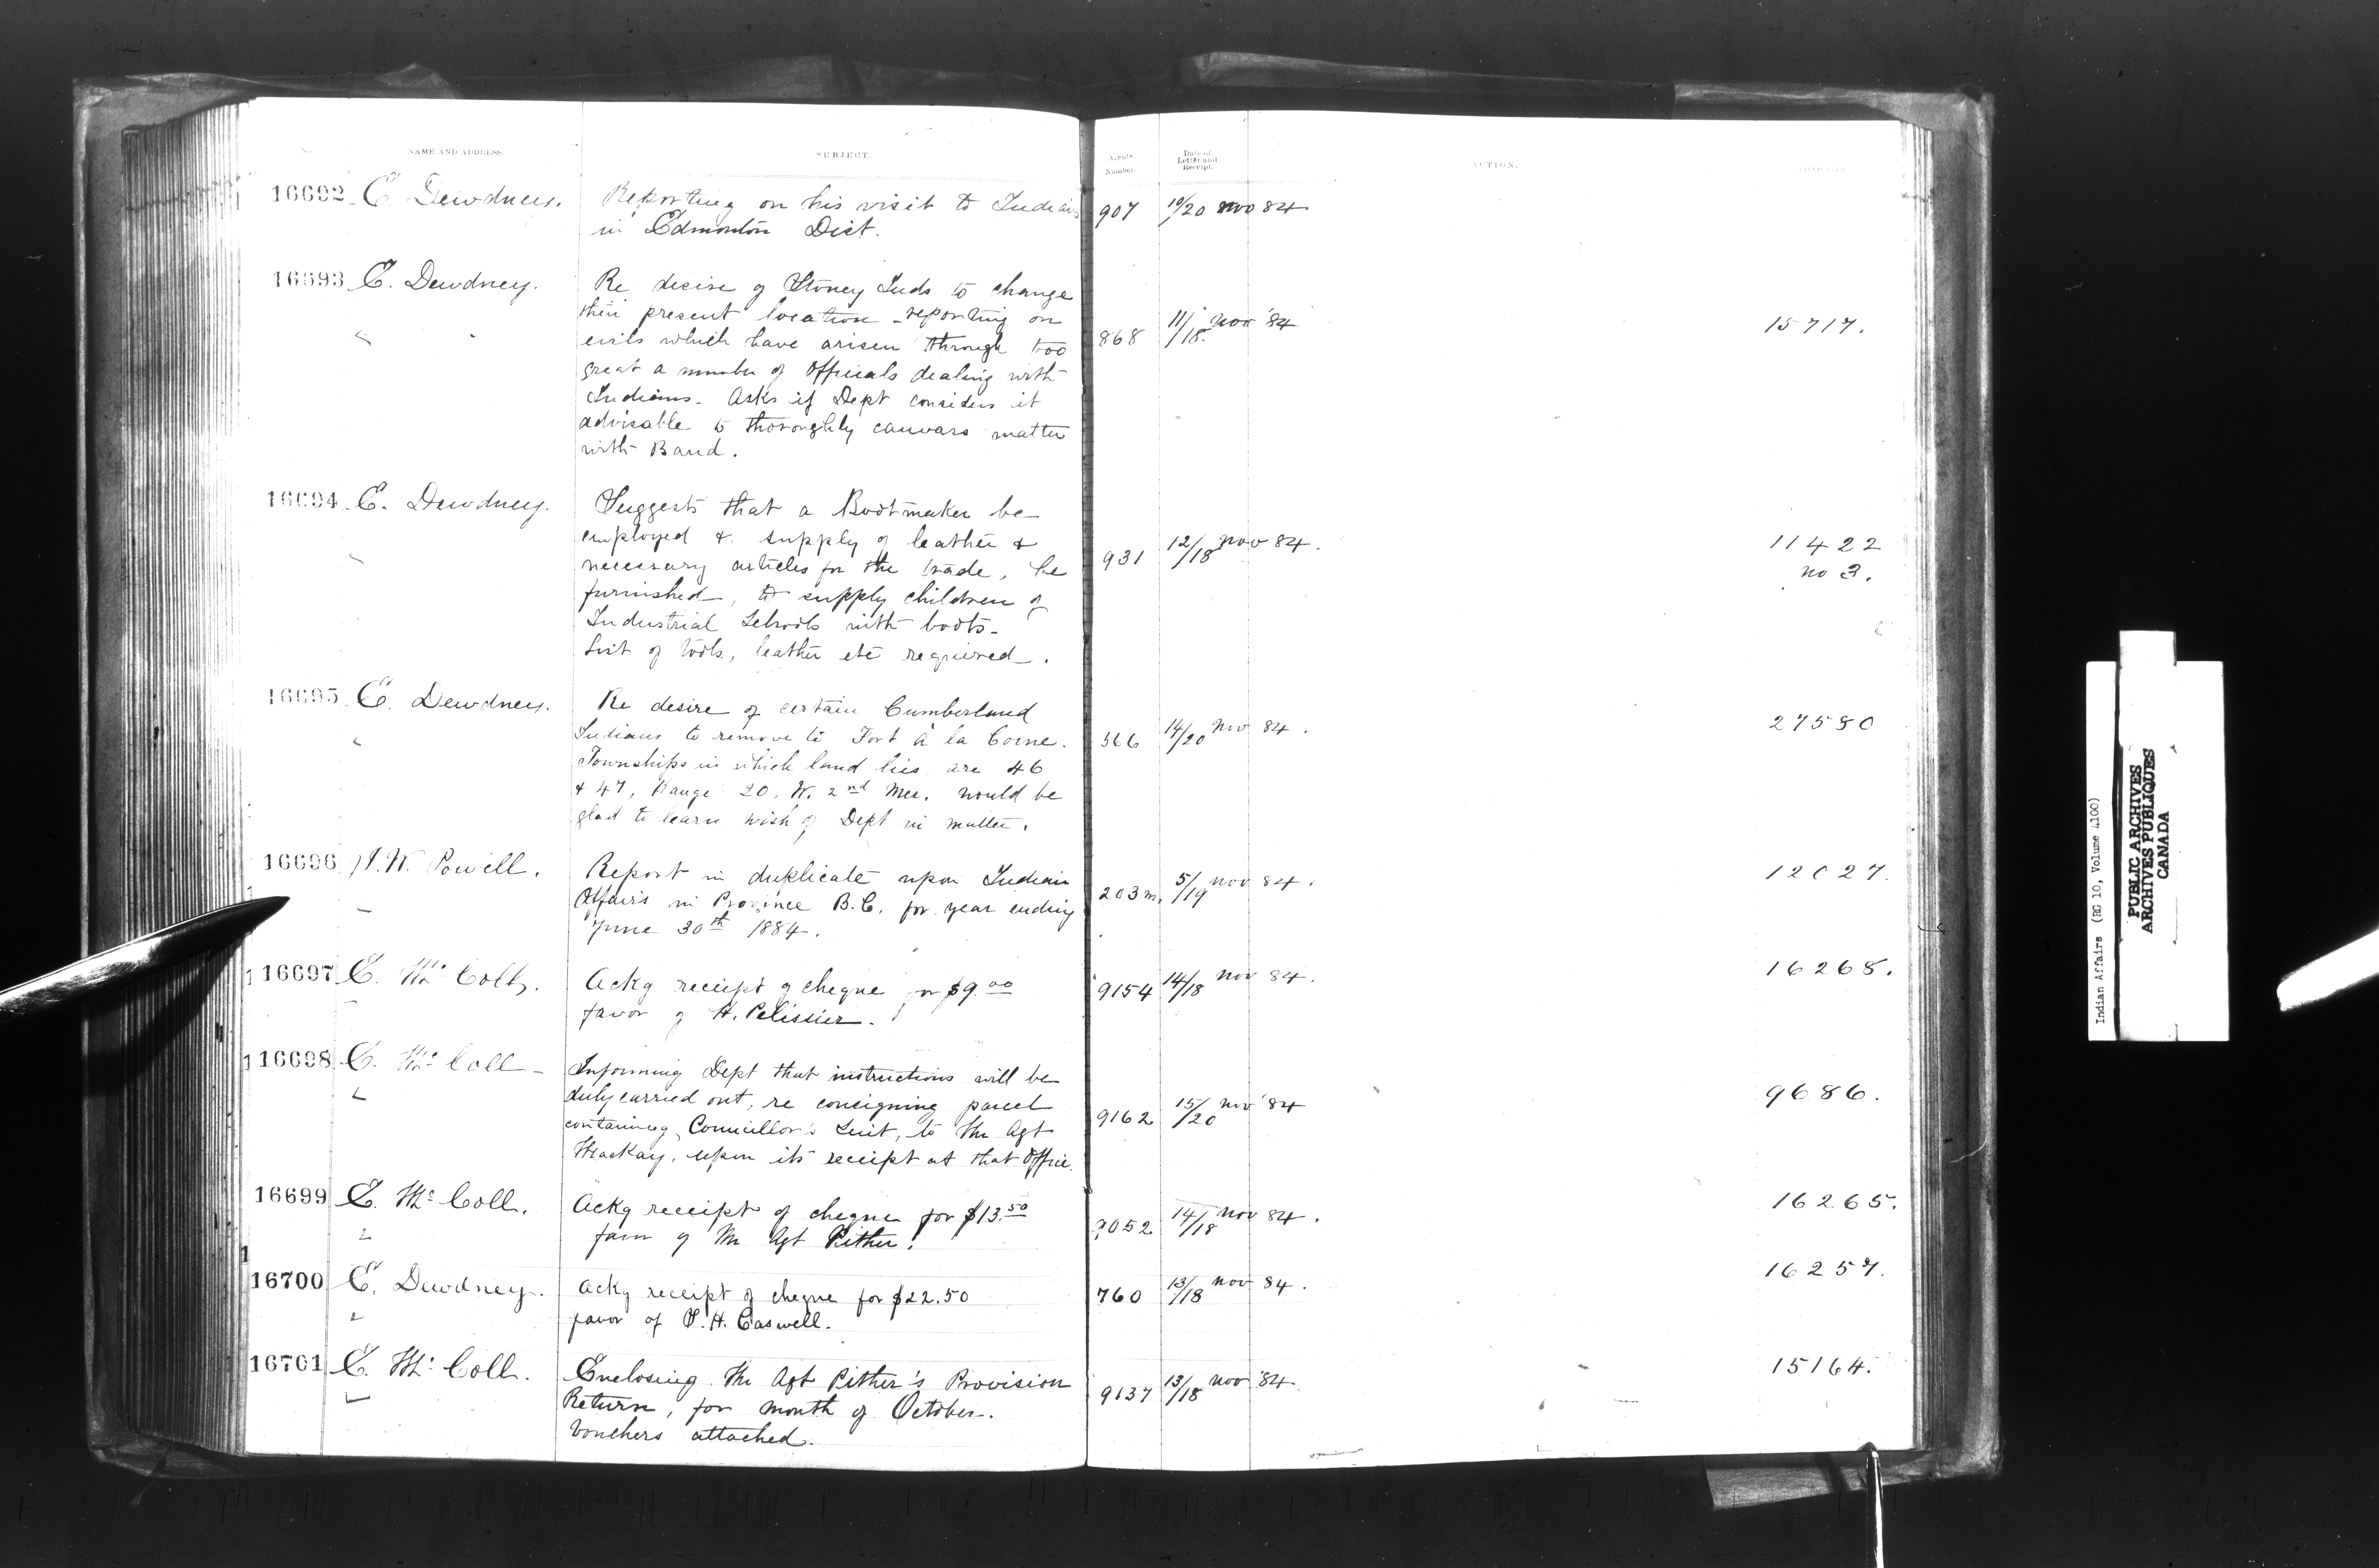 No. NAME AND ADDRESS. SUBJECT. Agents Number. Date of Letter and Receipt. ACTION.
16692 E. Dewdney. Reporting on his visit to Indians 907 10/20 Nov 84
in Edmonton Dist.
16693 E. Dewdney. Re desire of Stoney Inds to change
their present location - reporting on 868 11/18 Nov '84 15717.
evils which have arisen through too
great a number of Officials dealing with
Indians. Asks if Dept considers it
advisable to thoroughly canvass matter
with Band.
16694 E. Dewdney. Suggests that a Bootmaker be
employed & supply of leather & 931 12/18 Nov 84. 11422
necessary articles for the trade, be no 3.
furnished, to supply children of
Industrial Schools with boots.
List of tools, leather etc required.
16695 E. Dewdney. Re desire of certain Cumberland
Indians to remove to Fort à la Corne. 566 14/20 Nov 84. 27580
Townships in which land lies are 46
& 47, Range 20, W. 2nd Mer. would be
glad to learn wish of Dept in matter.
16696 I. W. Powell. Report in duplicate upon Indian 203 m. 5/19 Nov 84. 12027.
Affairs in Province B.C. for year ending
June 30th 1884.
16697 E. Mc Coll. Ackg receipt of cheque for $9.00 9154 14/18 Nov 84. 16268.
favor of H. Pelissier.
16698 E. Mc Coll - Informing Dept that instructions will be
duly carried out, re consigning parcel 9162 15/20 Nov '84 9686.
containing Councillor's Suit, to Mr Agt
Mackay, upon its receipt at that Office.
16699 E. Mc Coll. Ackg receipt of cheque for $13.50 9052 14/18 Nov 84. 16265.
favor of Mr Agt Pither.
16700 E. Dewdney. Ackg receipt of cheque for $22.50 760 13/18 Nov 84. 16257.
favor of T. H. Caswell.
16701 E. Mc Coll. Enclosing Mr Agt Pither's Provision 9137 13/18 Nov '84 15164.
Return, for month of October.
Vouchers attached.
Indian Affairs (RG 10, Volume 4100)
PUBLIC ARCHIVES
ARCHIVES PUBLIQUES
CANADA